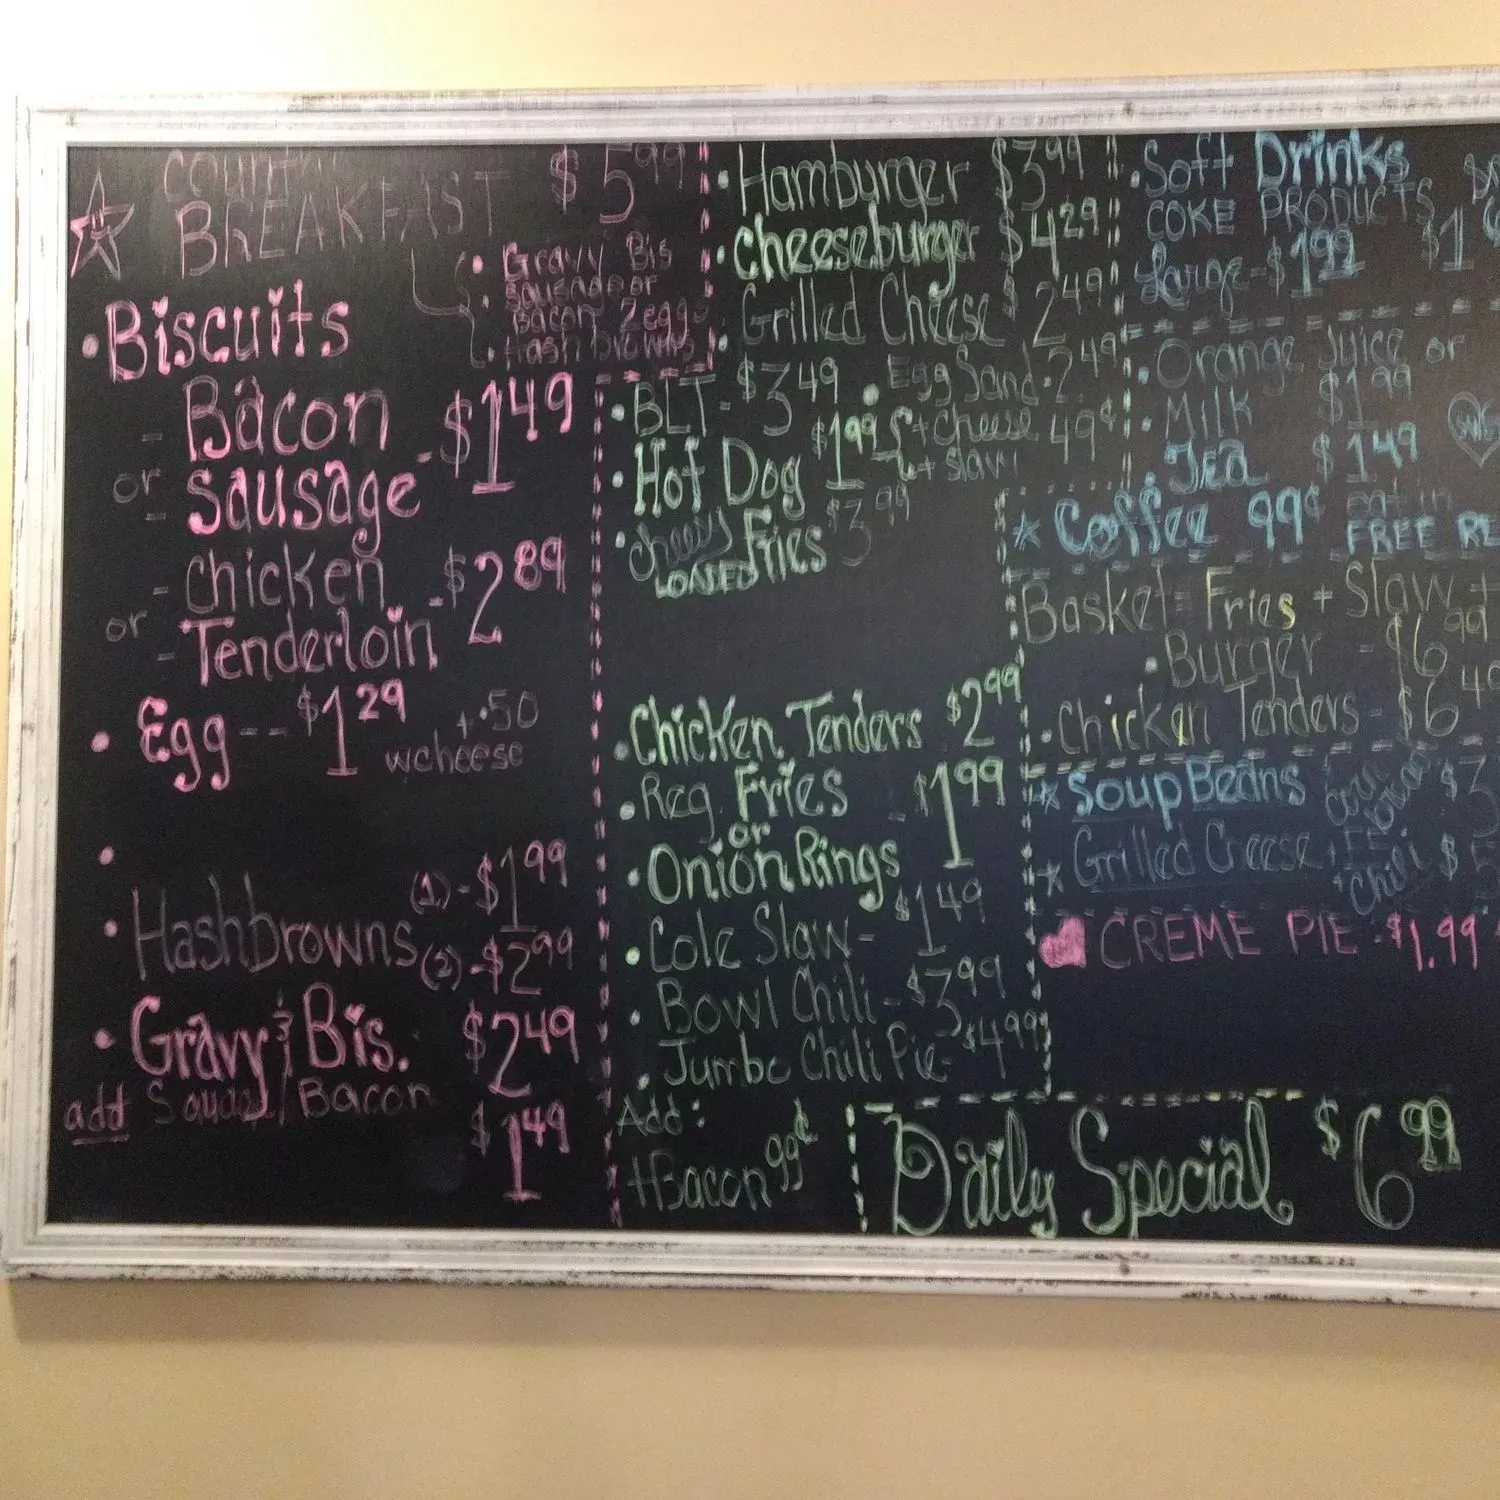 COUNTRY $5.99
BREAKFAST
• Gravy Bis
• Sausage or
Bacon 2 egg
• Hash browns
• Biscuits
- Bacon
or - $1.49
- Sausage
- Chicken
or - $2.89
- Tenderloin
• Egg -- $1.29 +.50
w cheese
•
• Hashbrowns (1) - $1.99
(2) - $2.99
• Gravy & Bis. $2.49
add Sausage / Bacon
$1.49
• Hamburger $3.99
• Cheeseburger $4.29
• Grilled Cheese $2.49
• BLT - $3.49
• Egg Sand. 2.49
+ cheese 49¢
+ slaw
• Hot Dog $1.99
• Cheesy $3.99
LOADED Fries
• Chicken Tenders $2.99
• Reg. Fries
or - $1.99
• Onion Rings
• Cole Slaw - $1.49
• Bowl Chili - $3.99
• Jumbo Chili Pie - $4.99
Add:
+Bacon 99¢
• Soft Drinks
COKE PRODUCTS
Large - $1.99 $1
• Orange Juice or
• Milk $1.99
• Tea $1.49
* Coffee 99¢ eat in
FREE RE
Basket = Fries + Slaw +
• Burger - $6.99
• Chicken Tenders - $6.49
* Soup Beans $3
* Grilled Cheese + FF
+ Chili $
CREME PIE - $1.99
Daily Special $6.99